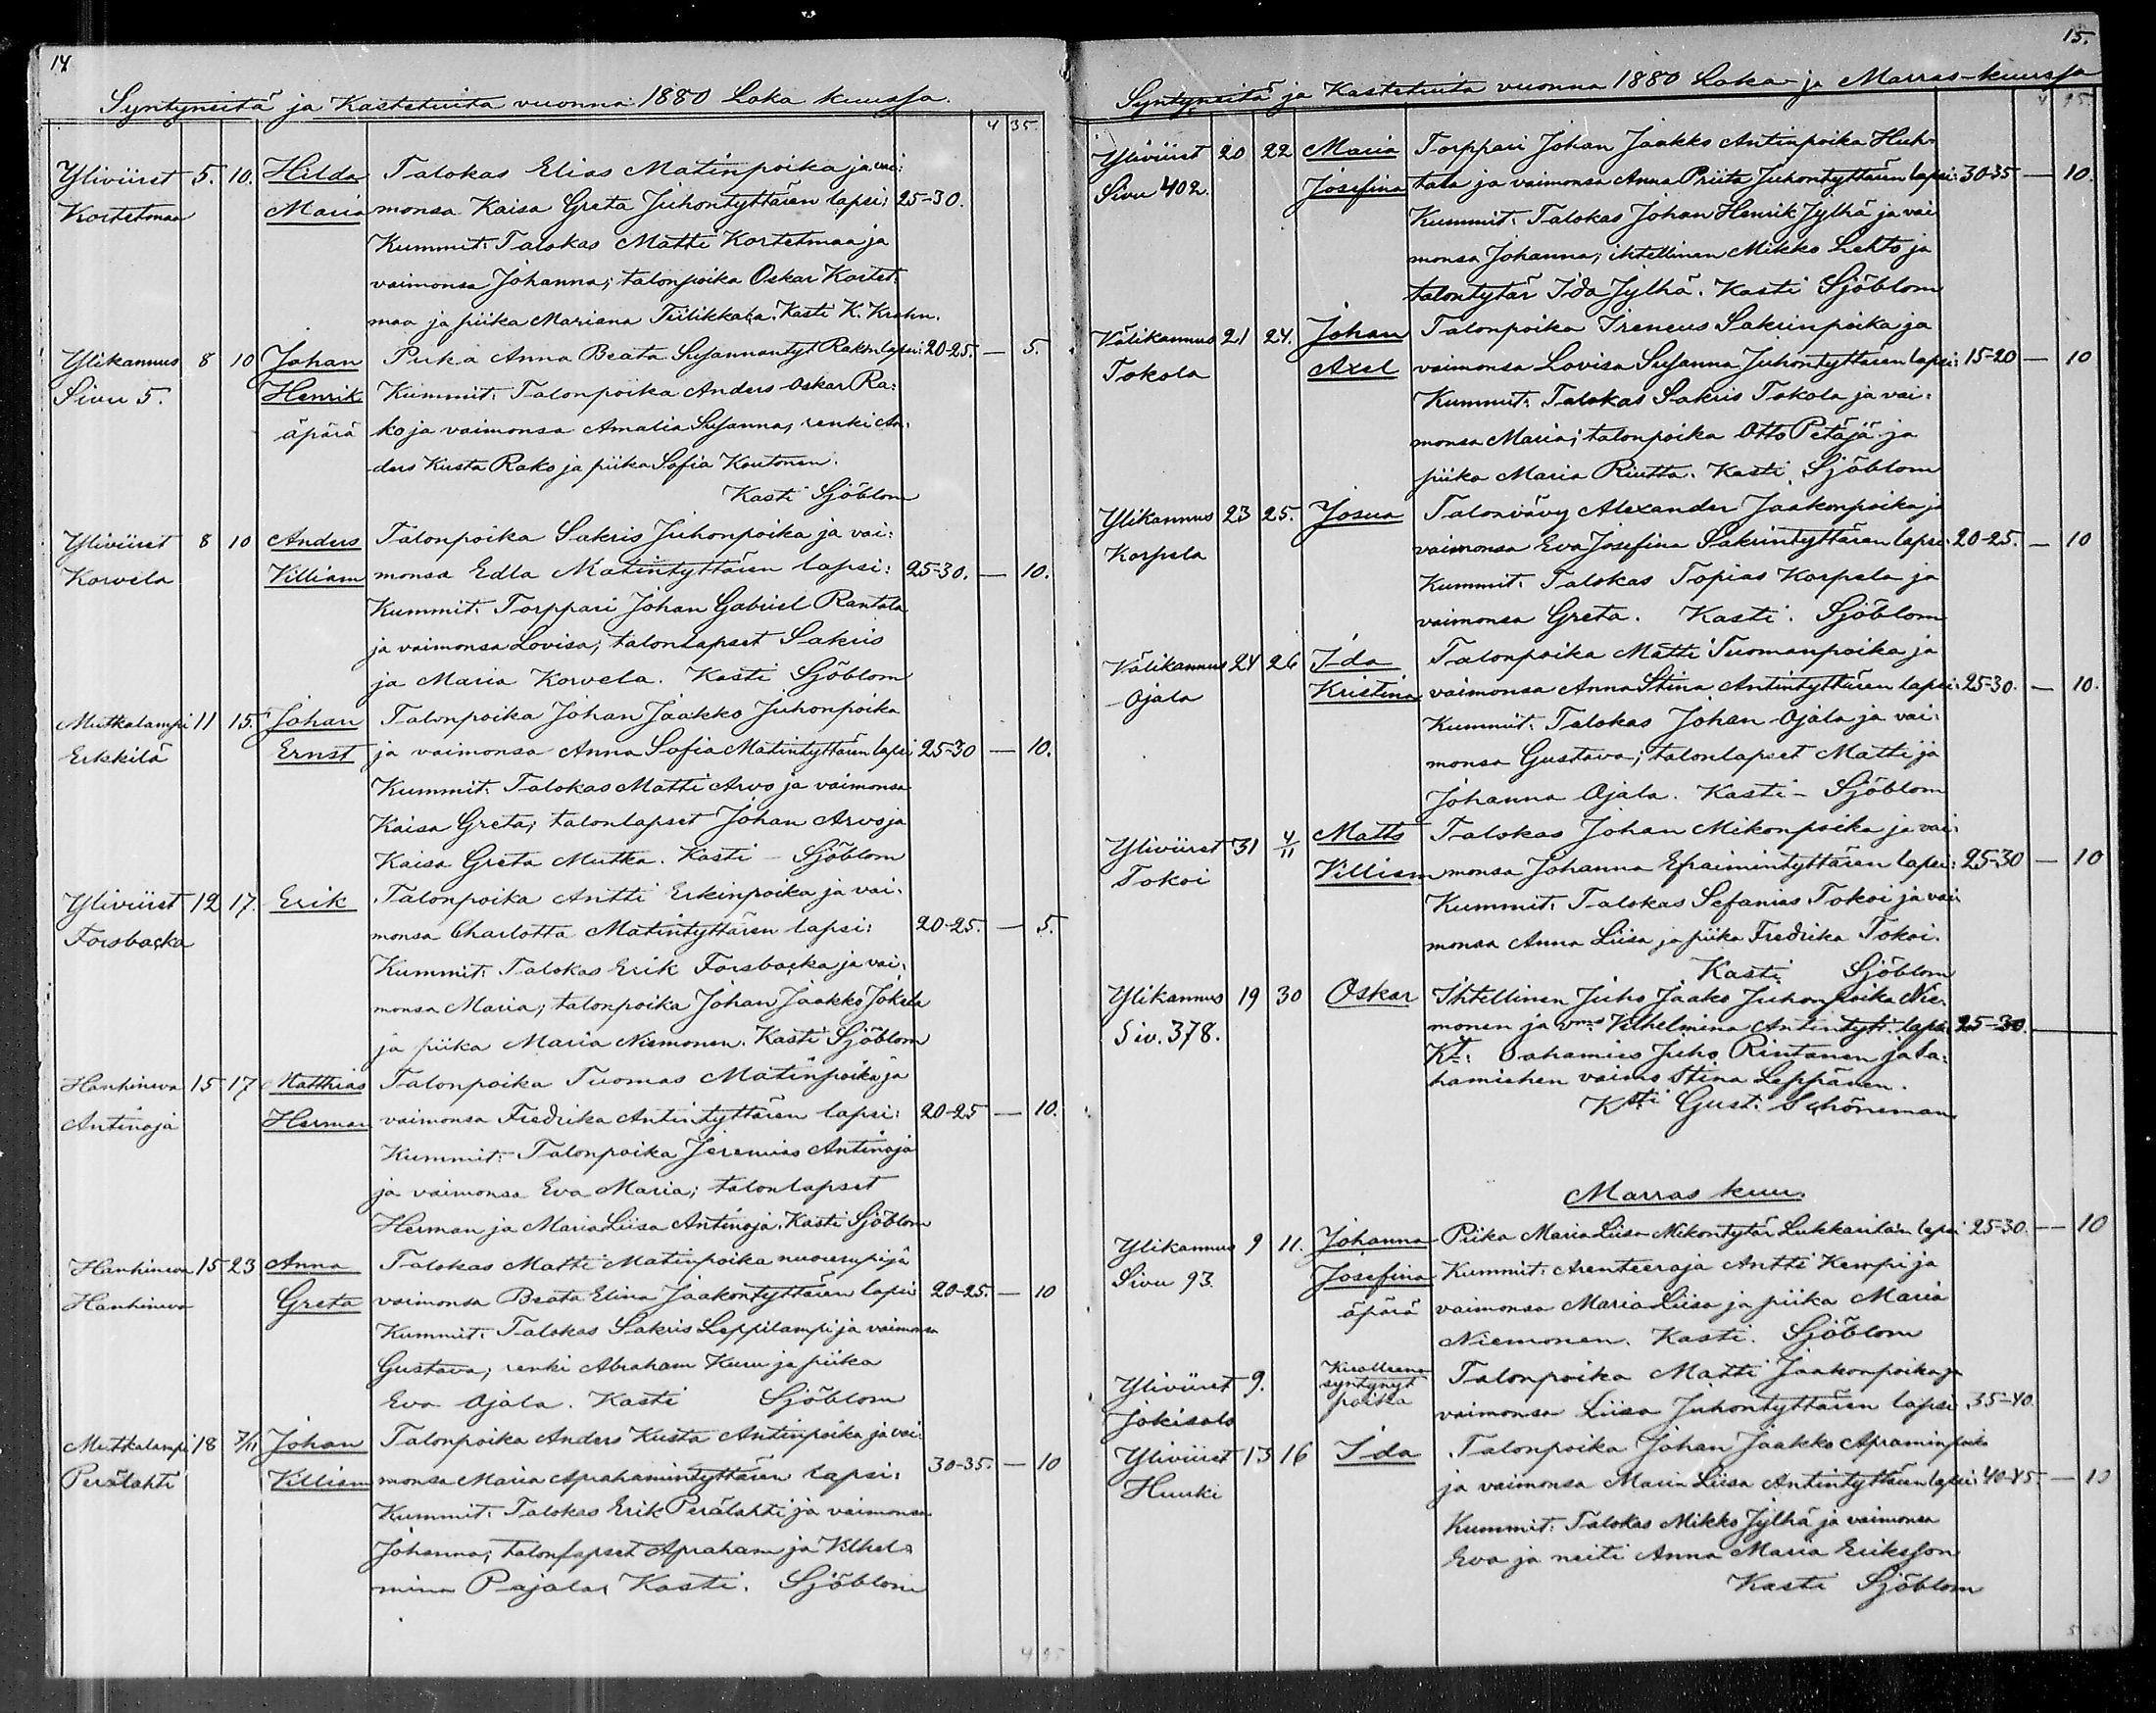 14
Syntyneitä ja Kastetuita vuonna 1880 Loka kuussa.
4 35.
Yliviiret 5. 10. Hilda Talokas Elias Matinpoika ja vai:
Kortetmaa Maria monsa Kaisa Greta Juhontyttären lapsi: 25-30.
Kummit: Talokas Matti Kortetmaa ja
vaimonsa Johanna; talonpoika Oskar Kortet:
maa ja piika Mariana Tiilikkala. Kasti K. Krohn.
Ylikannus 8 10 Johan Piika Anna Beata Susannantyt Rakon lapsi: 20-25. — 5.
Sivu 5. Henrik Kummit: Talonpoika Anders Oskar Ra:
äpärä ko ja vaimonsa Amalia Susanna, renki An:
ders Kusta Rako ja piika Sofia Koutonen.
Kasti Sjöblom
Yliviiret 8 10 Anders Talonpoika Sakris Juhonpoika ja vai:
Korvela Villiam monsa Edla Matintyttären lapsi: 25-30. — 10.
Kummit: Torppari Johan Gabriel Rantala
ja vaimonsa Lovisa; talonlapset Sakris
ja Maria Korvela. Kasti Sjöblom
Mutkalampi 11 15. Johan Talonpoika Johan Jaakko Juhonpoika
Erkkilä Ernst ja vaimonsa Anna Sofia Matintyttären lapsi 25-30 — 10.
Kummit: Talokas Matti Arvo ja vaimonsa
Kaisa Greta; talonlapset Johan Arvo ja
Kaisa Greta Mutka. Kasti – Sjöblom
Yliviiret 12 17. Erik Talonpoika Antti Erkinpoika ja vai:
Forsbacka monsa Charlotta Matintyttären lapsi: 20-25. — 5.
Kummit: Talokas Erik Forsbacka ja vai:
monsa Maria; talonpoika Johan Jaakko Jokela
ja piika Maria Niemonen. Kasti Sjöblom
Hanhineva 15 17 Matthias Talonpoika Tuomas Matinpoika ja
Antinoja Herman vaimonsa Fredrika Antintyttären lapsi: 20-25 — 10.
Kummit: Talonpoika Jeremias Antinoja
ja vaimonsa Eva Maria; talonlapset
Herman ja Maria Liisa Antinoja. Kasti Sjöblom
Hanhineva 15 23 Anna Talokas Matti Matinpoika nuorempi ja
Hanhineva Greta vaimonsa Beata Elina Jaakontyttären lapsi 20-25. — 10
Kummit: Talokas Sakris Leppilampi ja vaimonsa
Gustava; renki Abraham Kuru ja piika
Eva Ojala. Kasti Sjöblom
Mutkalampi 18 7/11 Johan Talonpoika Anders Kusta Antinpoika ja vai:
Perälahti Villiam monsa Maria Aprahamintyttären lapsi: 30-35. — 10
Kummit: Talokas Erik Perälahti ja vaimonsa
Johanna; talonlapset Apraham ja Vilhel:
mina Pajala, Kasti. Sjöblom
15.
Syntyneitä ja Kastetuita vuonna 1880 Loka- ja Marras-kuussa
Yliviiret 20 22 Maria Torppari Johan Jaakko Antinpoika Huh:
Sivu 402. Josefina tala ja vaimonsa Anna Priita Juhontyttären lapsi: 30-35 — 10.
Kummit: Talokas Johan Henrik Jylhä ja vai
monsa Johanna; ihtellinen Mikko Lehto ja
talontytär Ida Jylhä. Kasti Sjöblom
Välikannus 21 24. Johan Talonpoika Ireneus Sakrinpoika ja
Tokola Axel vaimonsa Lovisa Susanna Juhontyttären lapsi: 15-20 — 10
Kummit: Talokas Sakris Tokola ja vai:
monsa Maria; talonpoika Otto Petäjä ja
piika Maria Riutta. Kasti Sjöblom
Ylikannus 23 25. Josua Talonvävy Alexander Jaakonpoika ja
Korpela vaimonsa Eva Josefina Sakrintyttären lapsi 20-25. — 10
Kummit: Talokas Topias Korpela ja
vaimonsa Greta. Kasti. Sjöblom
Välikannus 24 26 Ida Talonpoika Matti Tuomanpoika ja
Ojala Kristina vaimonsa Anna Stina Antintyttären lapsi: 25-30. — 10.
Kummit: Talokas Johan Ojala ja vai:
monsa Gustava; talonlapset Matti ja
Johanna Ojala. Kasti – Sjöblom
Yliviiret 31 4/11 Matts Talokas Johan Mikonpoika ja vai:
Tokoi Villiam monsa Johanna Efraimintyttären lapsi: 25-30 — 10
Kummit: Talokas Sefanias Tokoi ja vai
monsa Anna Liisa ja piika Fredrika Tokoi.
Kasti Sjöblom
Ylikannus 19 30 Oskar Ihtellinen Juho Jaako Juhonpoika Nie:
Siv. 378. monen ja vms Vilhelmina Antintytt. lapsi 25-30.
Kt: Sahamies Juho Rintanen ja Sa:
hamiehen vaimo Stina Leppänen.
Ksti Gust. Schöneman
Marras kuu.
Ylikannus 9 11. Johanna Piika Maria Liisa Mikontytär Lukkarilan lapsi 25-30. — 10
Sivu 93. Josefina Kummit: Arenteeraja Antti Kempi ja
äpärä vaimonsa Maria Liisa ja piika Maria
Niemonen. Kasti. Sjöblom
Yliviiret 9. Kuolleena syntynyt poika Talonpoika Matti Jaakonpoika ja
Jokisalo vaimonsa Liisa Juhontyttären lapsi 35-40.
Yliviiret 13 16 Ida Talonpoika Johan Jaakko Apraminpoika
Huuki ja vaimonsa Maria Liisa Antintyttären lapsi: 40-45. — 10
Kummit: Talokas Mikko Jylhä ja vaimonsa
Eva ja neiti Anna Maria Eriksson
Kasti Sjöblom